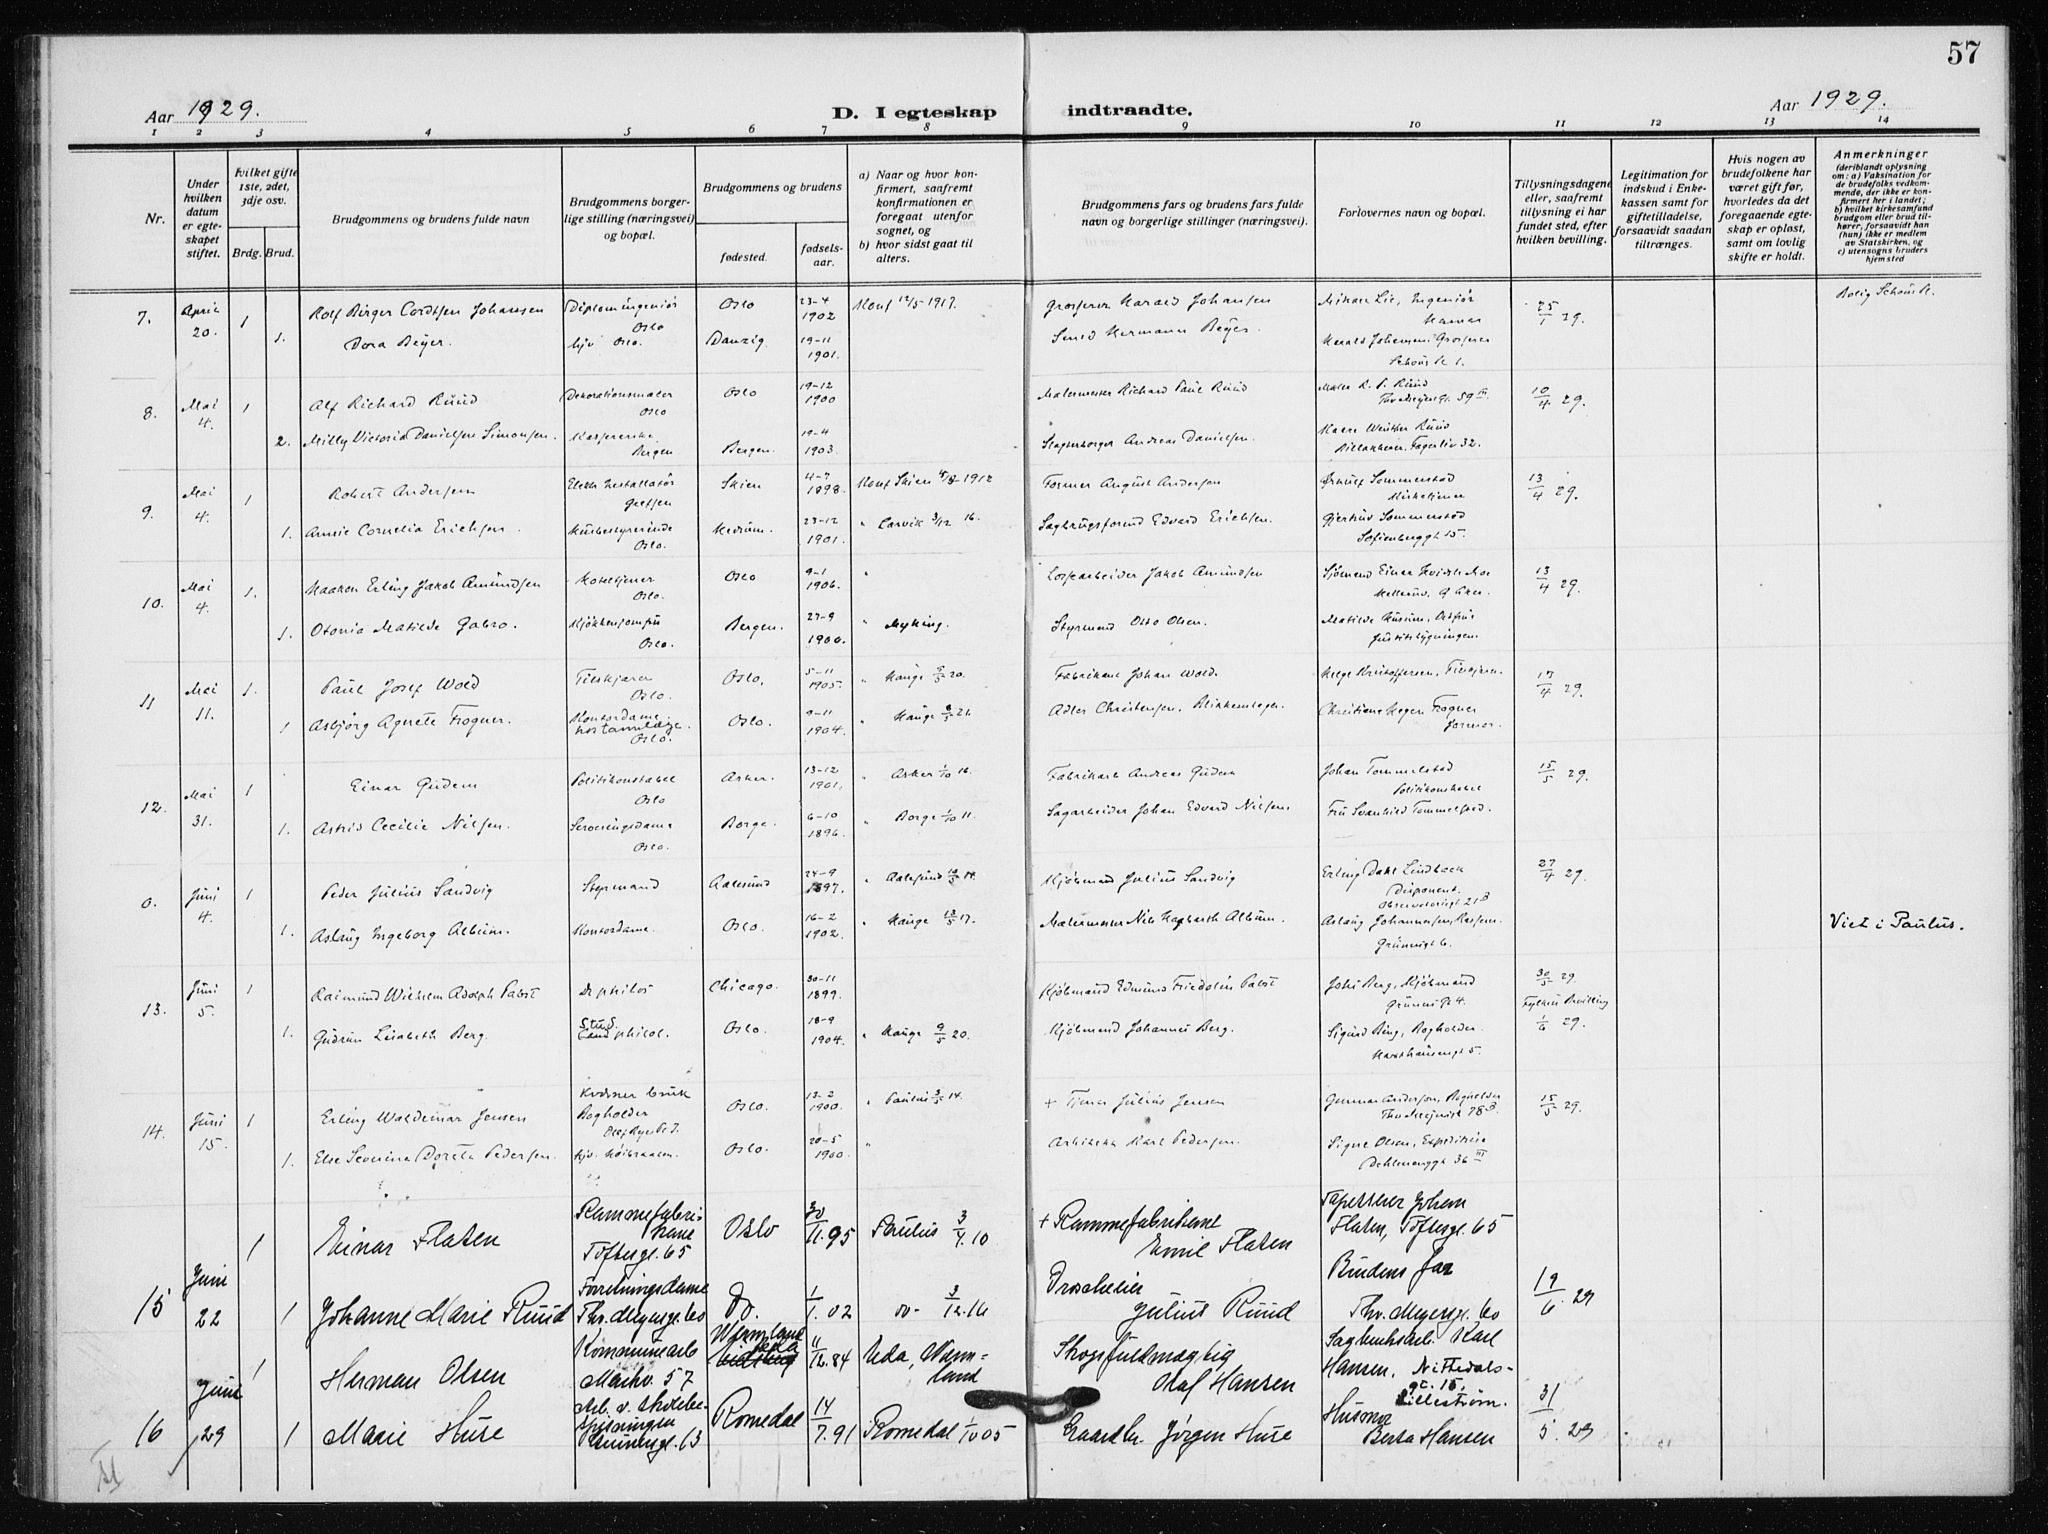 57
Aar 1929.
D. I egteskap indtraadte.
Aar 1929.
1 2 3 4 5 6 7 8 9 10 11 12 13 14
Nr.
Under hvilken datum er egteskapet stiftet.
Hvilket gifte 1ste, 2det, 3dje osv.
Brdg. Brud.
Brudgommens og brudens fulde navn
Brudgommens borgerlige stilling (næringsvei) og bopæl.
Brudgommens og brudens
fødested.
fødselsaar.
a) Naar og hvor konfirmert, saafremt konfirmationen er foregaat utenfor sognet, og
b) hvor sidst gaat til alters.
Brudgommens fars og brudens fars fulde navn og borgerlige stillinger (næringsvei).
Forlovernes navn og bopæl.
Tillysningsdagene eller, saafremt tillysning ei har fundet sted, efter hvilken bevilling.
Legitimation for indskud i Enkekassen samt for giftetilladelse, forsaavidt saadan tiltrænges.
Hvis nogen av brudefolkene har været gift før, hvorledes da det foregaaende egteskap er opløst, samt om lovlig skifte er holdt.
Anmerkninger
(deriblandt oplysning om: a) Vaksination for de brudefolks vedkommende, der ikke er konfirmert her i landet;
b) hvilket kirkesamfund brudgom eller brud tilhører, forsaavidt han (hun) ikke er medlem av Statskirken, og
c) utensogns bruders hjemsted
7. April 20. 1 Rolf Birger Cordtsen Johansen Diplomingeniør Oslo Oslo 23-4 1902 Konf 12/5 1917. Grosserer Harald Johansen Mikael Lie, Ingeniør Hamar 25/1 29.
1. Dora Beyer. Oslo. Danzig. 19-11 1901. Smed Hermann Beyer. Harald Johansen, Grosserer
8. Mai 4. 1 Alf Richard Ruud Dekorationsmaler Oslo Oslo 19-12 1900 Malermester Richard Paul Ruud Maler R. P. Ruud Thv Meyersgt. 59 III. 10/4 29.
2. Milly Victoria Danielsen Simonsen. Kasererske Bergen Bergen. 19-4 1903. Andreas Danielsen. Kaare Winther Ruud Fagerliv 32.
9. Mai 4. 1 Robert Andersen Elektr Installatør Skien 4-7 1898. Konf Skien 1912 Former August Andersen Ørnulf Sommerstad Kirketjener 13/4 29.
1. Cornelia Erichsen Husbestyrerinde Oslo. Hedrum. 23-12 1901. " Larvik 3/12 16. Sagbrugsformd Edvard Erichsen. Gjertrud Sommerstad Sofienberggt 15.
10. Mai 4. 1. Haakon Erling Jakob Amundsen Hoteltjener Oslo. Oslo 9-1 1906. " Losjearbeider Jakob Amundsen Sjømand Einar 13/4 29.
1. Otonia Matilde Gabro. Kjøkkenjomfru Oslo. Bergen. 27-9 1900. " Myking. Styrmand Otto Olsen. Matilde
11 Mai 11. 1. Paul Josef Wold Tilskjærer Oslo. Oslo. 5-11 1905. " Hauge 9/5 20. Fabrikant Johan Wold. Helge Kristoffersen, 17/4 29.
1 Asbjørg Agnete Frogner. Kontordame Oslo. Oslo. 9-11 1904. " Hauge 8/5 21. Adler Christensen, Blikkenslager. Christiane Hegen Frogner
12. Mai 31. 1 Einar Gudem Politikonstabel Oslo Asker. 13-12 1901. " Asker 1/10 16. Fabrikarb Andreas Gudem Johan Tommelstad Politikonstabel 15/5 29.
1. Astrid Cecilie Nilsen. Serveringsdame Oslo. Borge. 6-10 1896. " Borge 1/10 11. Sagarbeider Johan Edvard Nilsen. Fru Svanhild Tommelstad.
0. Juni 4. 1 Peder Julius Sandvig Styrmand Aalesund 24-9 1897. " Aalesund Kjøbmand Julius Sandvig Erling Dahl Lindboek Disponent. Observatoriegt 21 B 27/4 29.
1. Aslaug Ingeborg Album. Kontordame. Oslo. 16-2 1902. " Hauge 13/5 17. Malermester Nils Hagbarth Album. Aslaug Johannesen, Grünersgt 6. Viet i Paulus.
13. Juni 5. 1 Raimund Wilhelm Adolph Pabst Dr philos Chicago. 30-11 1899. Kjøbmand Edmund Friedolin Pabst Johs Berg, Kjøbmand Grüners Gt 4. 30/5 29. Fylkets Bevilling
1. Gudrun Lisabeth Berg. Stud philol. Oslo. 18-9 1904. " Hauge 9/5 20. Kjøbmand Johannes Berg. Sigurd Ring, Bogholder. 1/6 29.
14. Juni 15. 1 Erling Waldemar Jensen Bogholder Oslo. 12-2 1900. " Paulus 3/5 14. + Julius Jensen Gunnar Andersen, Bogholder Thv Meyersgt 78 B 15/5 29.
1. Else Severine Dorete Pedersen. Oslo. 20-5 1900. " Arkitekt Karl Pedersen. Signe Olsen, Dahlenenggt 36 III
15 Juni 22 1 Einar Flaten Rammefabrikant Toftesgt. 65 Oslo 30/11.95 Paulus 3/4.10 + Rammefabrikant Emil Flaten Tapetserer Johan Flaten, Toftesgt. 65 19/6. 29
1 Johanne Marie Ruud Forretningsdame Thv. Meyersgt. 60 Do. 1/1.02 Do- 3/12.16 Droscheeier Julius Ruud Brudens far Thv. Meyersgt. 60
16 Juni 29 1 Herman Olsen Kommunearb Markv. 57 Wermland 11/12.84 Eda, Wermland Skogsfuldmægtig Olaf Hansen Sagbruksarb. Karl Hansen, Nittedalsgt. 15, Lillestrøm. 31/5. 29
1 Marie Huse Arb. v. skolebespisningen Grünersgt. 13 Romedal 14/7.91 Romedal 1/10 05 Gaardbr. Jørgen Huse Husmor Berta Hansen